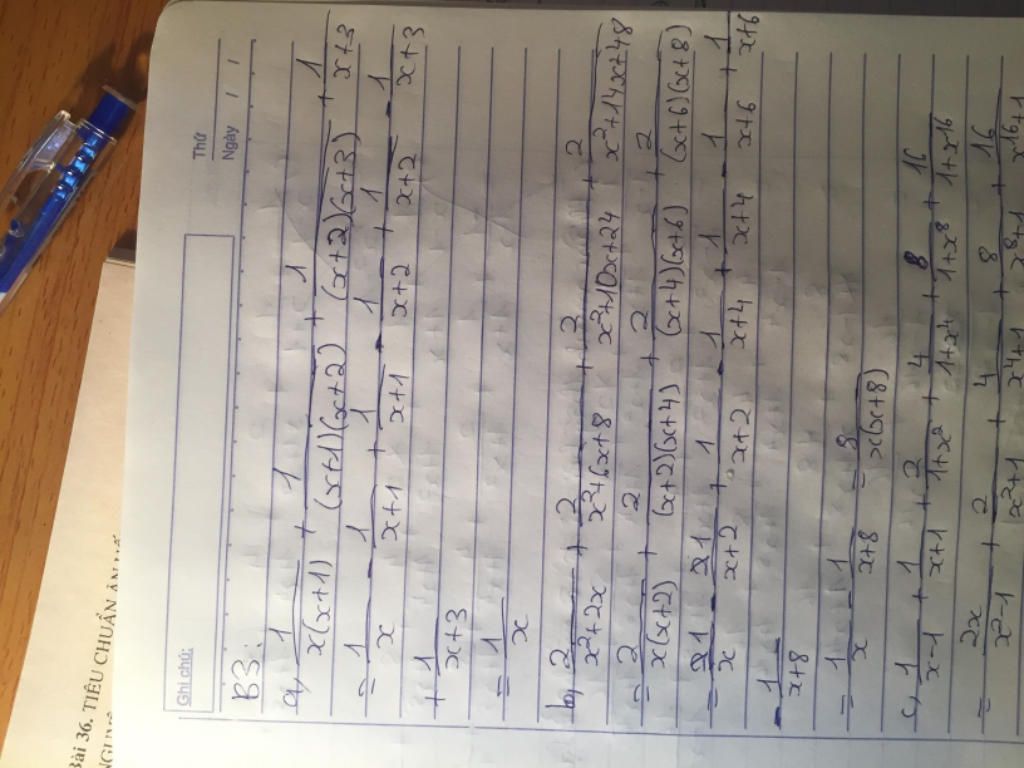 Bài 36. TIÊU CHUẨN AN
Ghi chú:
Thứ
Ngày / /
B3:
a, 1/x(x+1) + 1/(x+1)(x+2) + 1/(x+2)(x+3) + 1/x+3
= 1/x - 1/x+1 + 1/x+1 - 1/x+2 + 1/x+2 - 1/x+3
+ 1/x+3
= 1/x
b, 2/x²+2x + 2/x²+6x+8 + 2/x²+10x+24 + 2/x²+14x+48
= 2/x(x+2) + 2/(x+2)(x+4) + 2/(x+4)(x+6) + 2/(x+6)(x+8)
= 1/x - 1/x+2 + 1/x+2 - 1/x+4 + 1/x+4 - 1/x+6 + 1/x+6
- 1/x+8
= 1/x - 1/x+8 = 8/x(x+8)
c, 1/x-1 + 1/x+1 + 2/1+x² + 4/1+x⁴ + 8/1+x⁸ + 16/1+x¹⁶
= 2x/x²-1 + 2/x²+1 + 4/x⁴+1 + 8/x⁸+1 + 16/x¹⁶+1